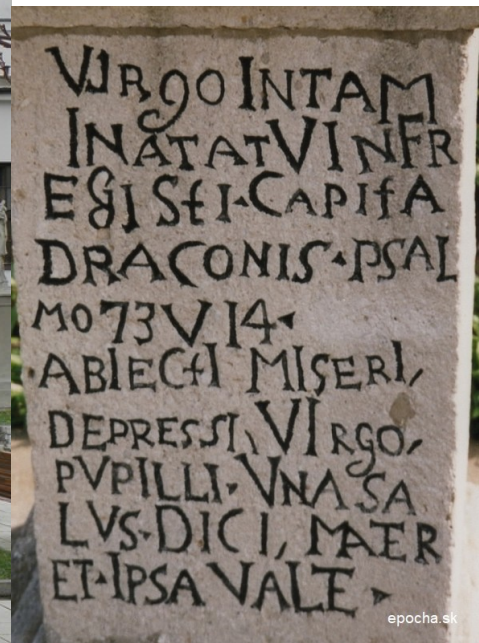 VIRGO INTAM
INATA TV INFR
EGISTI · CAPITA
DRACONIS · PSAL
MO 73 V 14 ·
ABIECTI MISERI,
DEPRESSI, VIRGO,
PVPILLI · VNA SA
LVS · DICI, MATER
ET · IPSA VALE ·
epocha.sk